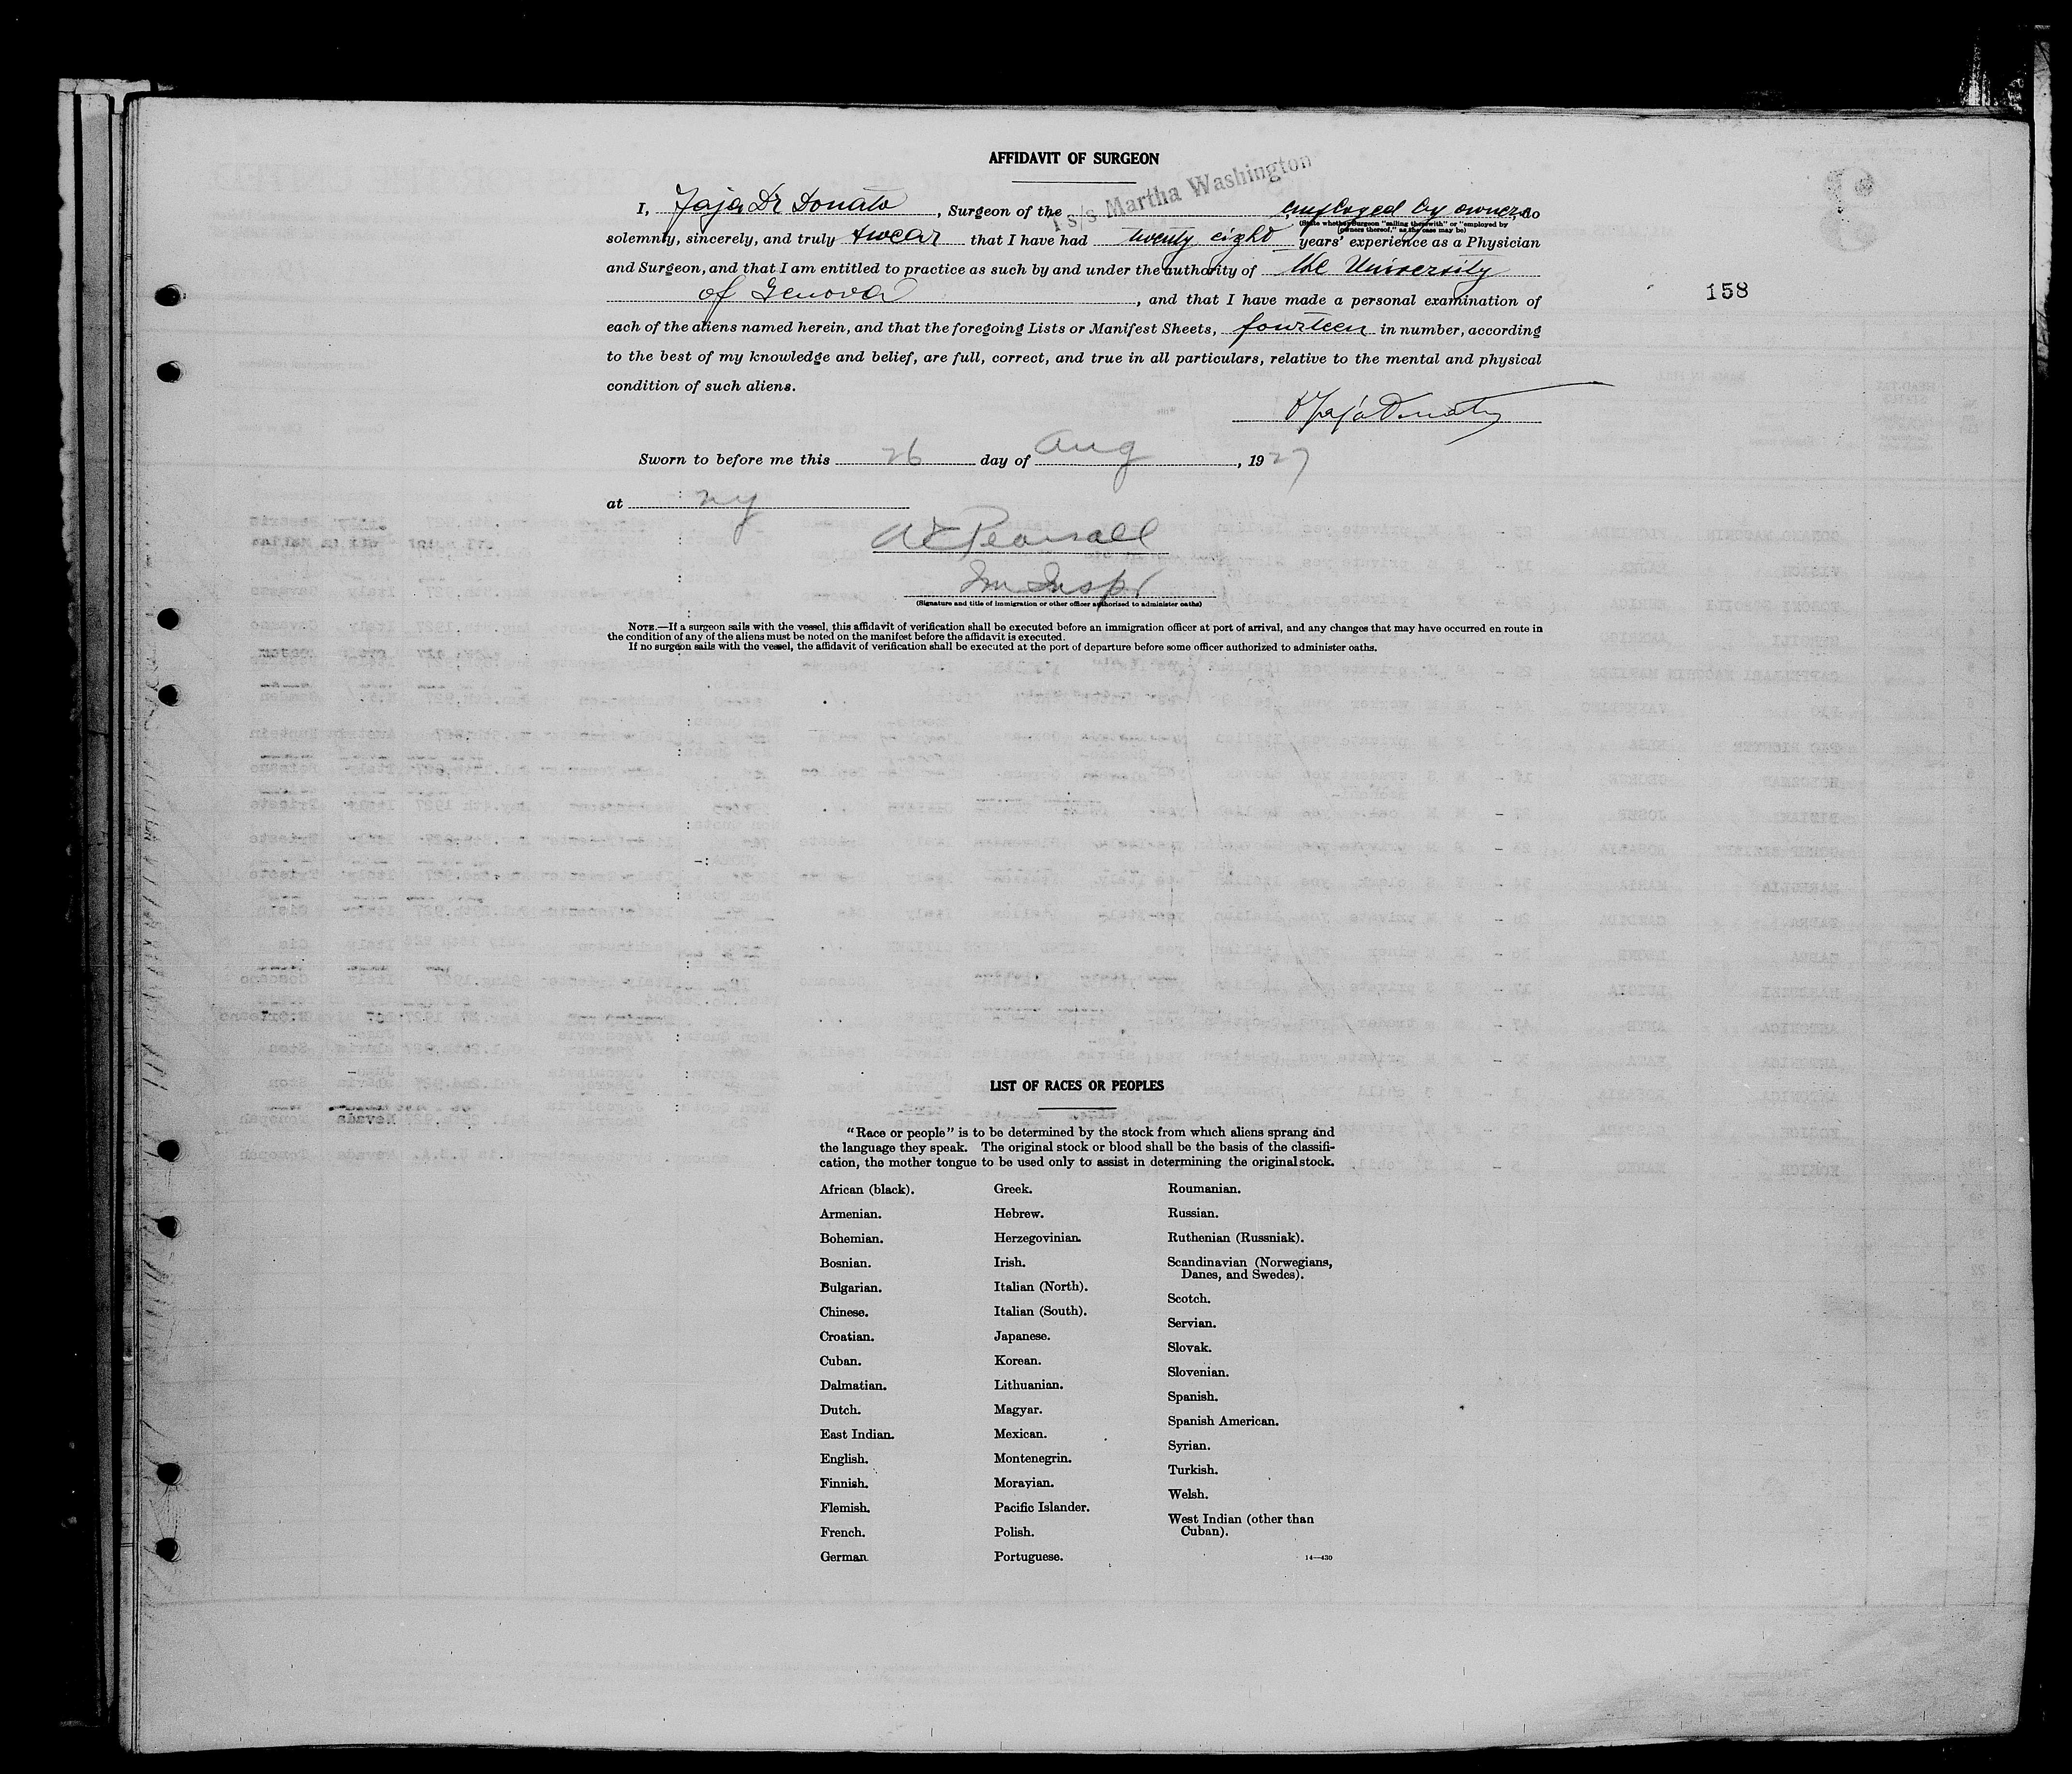 AFFIDAVIT OF SURGEON
I, Jaja Dr Donato, Surgeon of the s/s Martha Washington employed by owners, do
(State whether Surgeon "sailing therewith" or "employed by owners thereof," as the case may be)
solemnly, sincerely, and truly swear that I have had twenty eight years' experience as a Physician
and Surgeon, and that I am entitled to practice as such by and under the authority of the University
of Genova, and that I have made a personal examination of
158
each of the aliens named herein, and that the foregoing Lists or Manifest Sheets, fourteen in number, according
to the best of my knowledge and belief, are full, correct, and true in all particulars, relative to the mental and physical
condition of such aliens.
Sworn to before me this 26 day of Aug, 1927
at ny
Pearsall
Im Inspr
(Signature and title of immigration or other officer authorized to administer oaths)
NOTE.—If a surgeon sails with the vessel, this affidavit of verification shall be executed before an immigration officer at port of arrival, and any changes that may have occurred en route in
the condition of any of the aliens must be noted on the manifest before the affidavit is executed.
If no surgeon sails with the vessel, the affidavit of verification shall be executed at the port of departure before some officer authorized to administer oaths.
LIST OF RACES OR PEOPLES
"Race or people" is to be determined by the stock from which aliens sprang and
the language they speak. The original stock or blood shall be the basis of the classifi-
cation, the mother tongue to be used only to assist in determining the original stock.
African (black).
Armenian.
Bohemian.
Bosnian.
Bulgarian.
Chinese.
Croatian.
Cuban.
Dalmatian.
Dutch.
East Indian.
English.
Finnish.
Flemish.
French.
German
Greek.
Hebrew.
Herzegovinian.
Irish.
Italian (North).
Italian (South).
Japanese.
Korean.
Lithuanian.
Magyar.
Mexican.
Montenegrin.
Moravian.
Pacific Islander.
Polish.
Portuguese.
Roumanian.
Russian.
Ruthenian (Russniak).
Scandinavian (Norwegians,
Danes, and Swedes).
Scotch.
Servian.
Slovak.
Slovenian.
Spanish.
Spanish American.
Syrian.
Turkish.
Welsh.
West Indian (other than
Cuban).
14—430